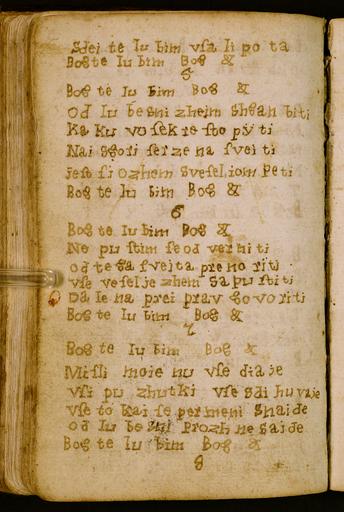 Sdei te Iu bim vsa li po ta
Bog te Iu bim Bog &
5
Bog te Iu bim Bog &
od Iu besni zheim shgan biti
Ka ku vo sek te sto py ti
Nai
na svei ti
Bog te Iu bim Bog &
6
Bog te Iu bim Bog &
Ne pu stim se od ver ni ti
od te ga svejta pre no siti
vse vesel je zhem sa pu stiti
Da le na prei prav go vo riti
Bog te Iu bim Bog &
7
Bog te Iu bim Bog &
Misli moie nu vse dia ie
vsi pu zhutki vse sdi hu vaie
vse to kai se per meni snaide
od Iu be sni Prozh ne gaide
Bog te Iu bim Bog &
8